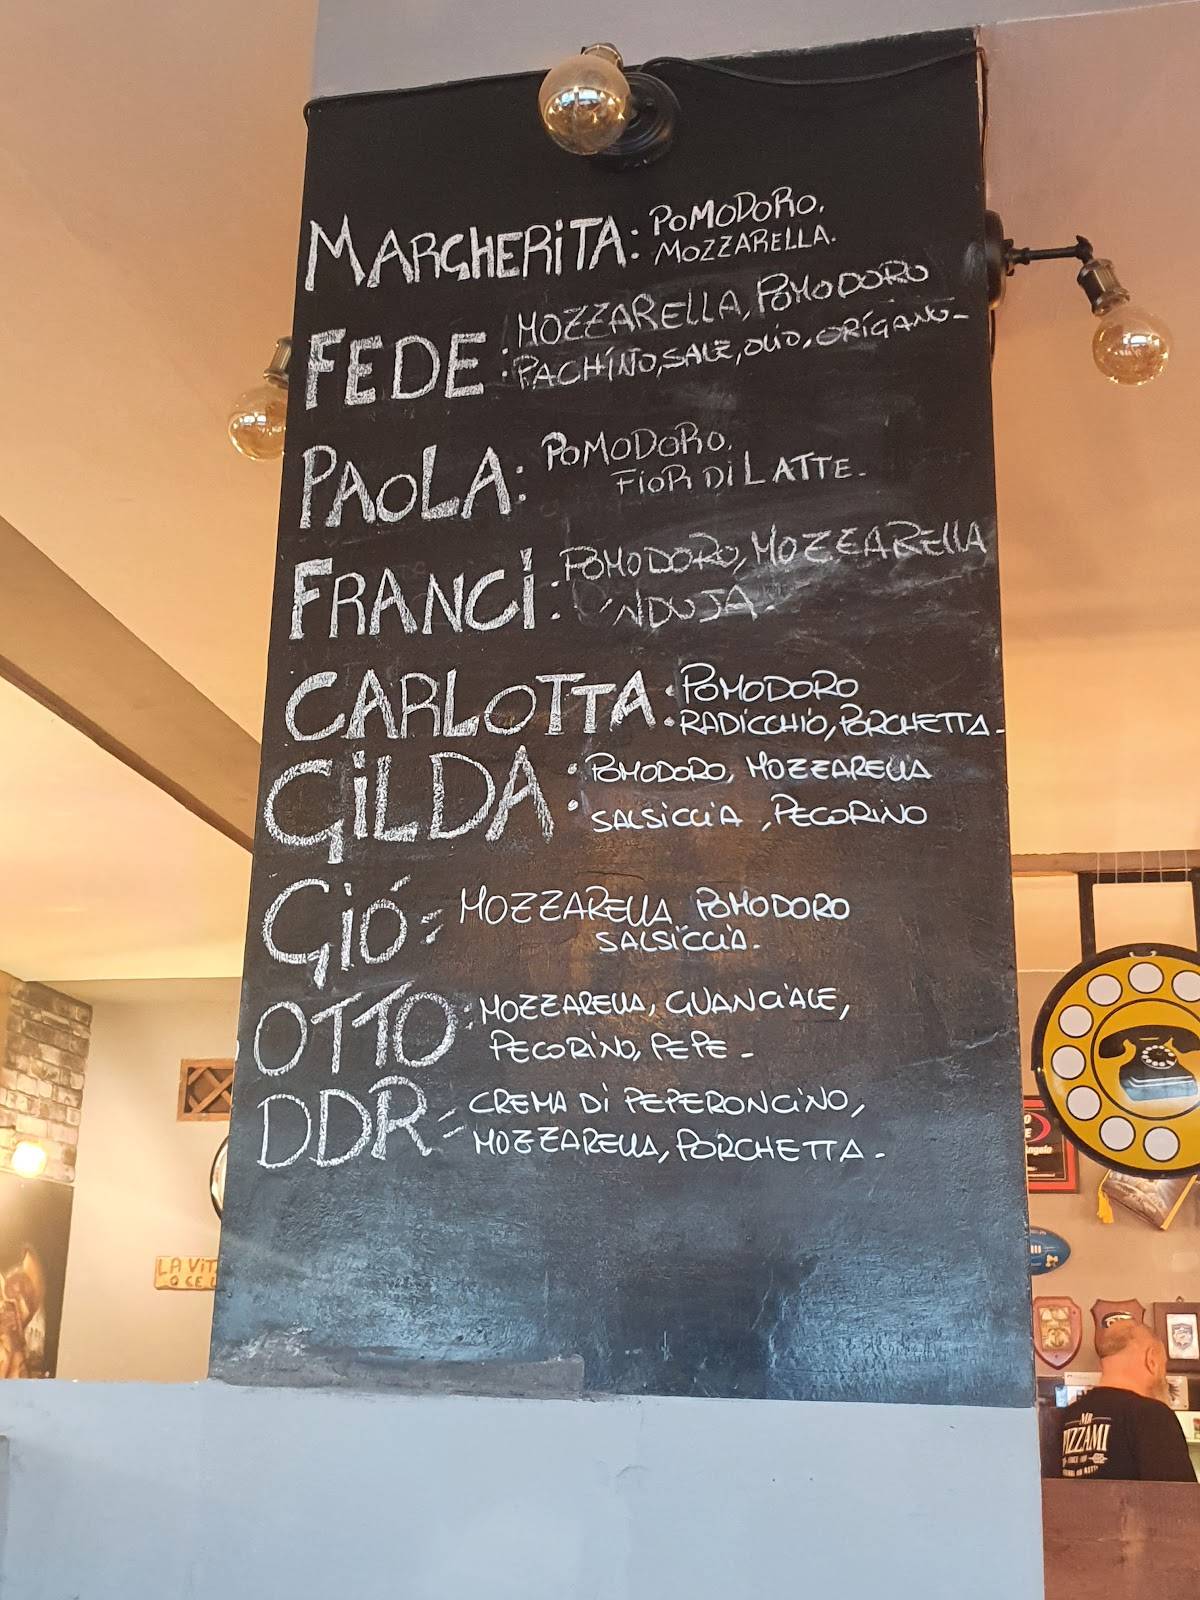 MARGHERITA: POMODORO.
MOZZARELLA.
FEDE: MOZZARELLA, POMODORO
PACHINO, SALE, OLIO, ORIGANO-
PAOLA: POMODORO.
FIOR DI LATTE-
FRANCI: POMODORO, MOZZARELLA
'NDUJA.
CARLOTTA: POMODORO
RADICCHIO, PORCHETTA-
GILDA: POMODORO, MOZZARELLA
SALSICCIA, PECORINO
GIÓ= MOZZARELLA POMODORO
SALSICCIA.
OTTO: MOZZARELLA, GUANCIALE,
PECORINO, PEPE-
DDR= CREMA DI PEPERONCINO,
MOZZARELLA, PORCHETTA-
LA VIT
O CE
MR
IZZAMI